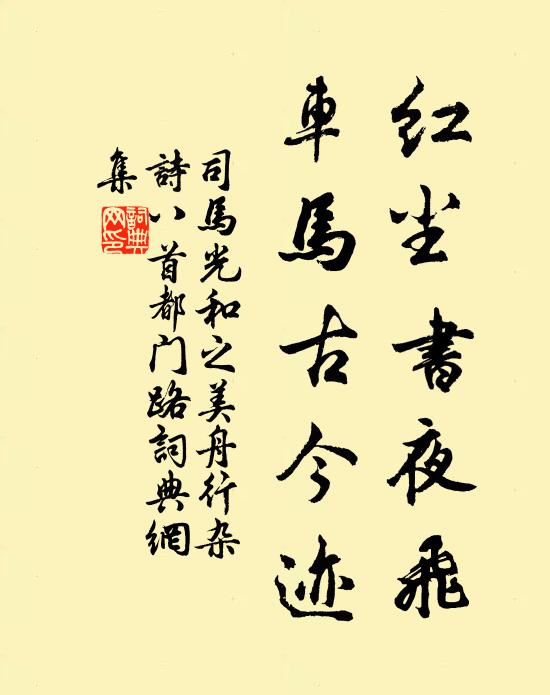 红尘書夜飛
車馬古今迹
司馬光和之美舟行杂
詩八首都门路詞典網
集
詞典
网印